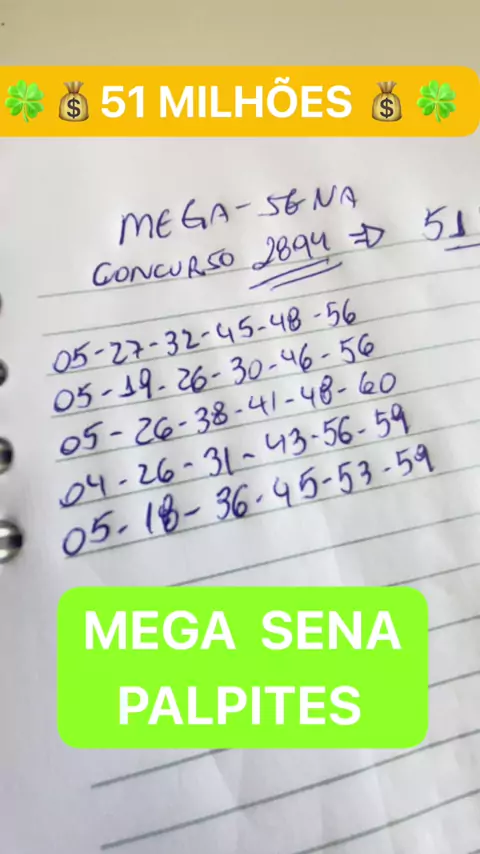 🍀💰51 MILHÕES 💰🍀
MEGA-SENA
CONCURSO 2894 => 51
05-27-32-45-48-56
05-19-26-30-46-56
05-26-38-41-48-60
04-26-31-43-56-59
05-18-36-45-53-59
MEGA SENA
PALPITES